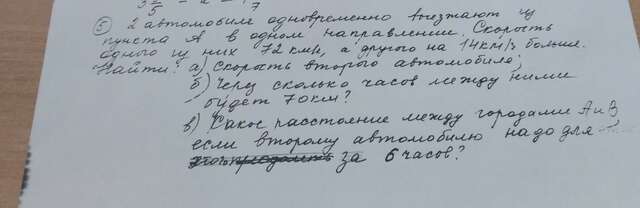 ⑤ 2 автомобиля одновременно выезжают из
пункта А в одном направлении. Скорость
одного из них 72 км/ч, а другого на 14 км/ч больше.
Найти: а) Скорость второго автомобиля;
б) Через сколько часов между ними
будет 70 км?
в) Какое расстояние между городами А и В
если второму автомобилю надо для
за 6 часов?